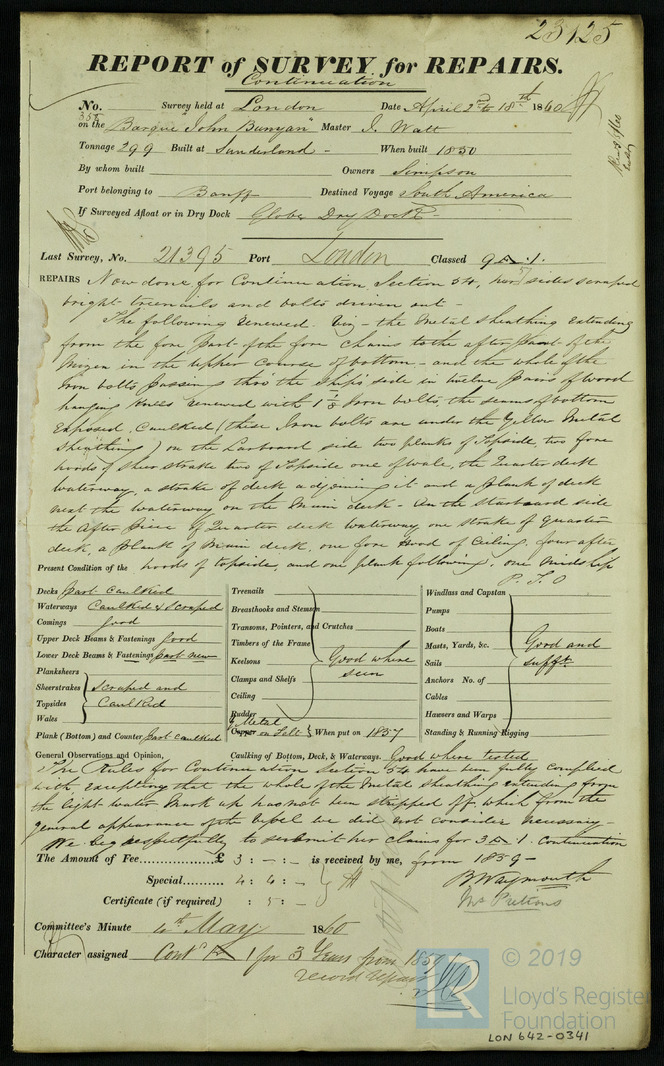 23125
REPORT of SURVEY for REPAIRS.
Continuation
No. 355 Survey held at London Date April 2nd to 18th 1860
on the Barque "John Bunyan" Master J. Watt
Tonnage 299 Built at Sunderland - When built 1850
By whom built Owners Simpson
Port belonging to Banff Destined Voyage South America
If Surveyed Afloat or in Dry Dock Globe Dry Dock
Last Survey, No. 21395 Port London Classed 9 A 1. 57
REPAIRS Now done for Continuation Section 54, her sides scraped
bright treenails and bolts driven out -
The following renewed. Viz - the Metal Sheathing extending
from the fore part of the fore chains to the after part of the
Mizen in the upper course of bottom - and the whole of the
Iron bolts passing thro' the Ship's side in twelve pairs of wood
hanging Knees renewed with 1 1/8 Iron bolts, the seams of bottom
exposed, Caulked (these Iron bolts are under the Yellow Metal
Sheathing) on the Larboard side two planks of Topside, two fore
hoods of sheer strake two of Topside one of wale, the Quarter deck
waterway, a strake of deck adjoining it and a plank of deck
next the waterway on the Main deck - On the starboard side
the After Piece of Quarter deck waterway one strake of quarter
deck, a plank of Main deck, one fore hood of Ceiling, four after
Present Condition of the hoods of topside, and one plank following, one Midship
P. T. O
Decks Part Caulked
Waterways Caulked & Scraped
Comings Good
Upper Deck Beams & Fastenings Good
Lower Deck Beams & Fastenings part new
Planksheers
Sheerstrakes Scraped and
Topsides Caulked
Wales
Plank (Bottom) and Counter Part caulked
Treenails
Breasthooks and Stemson
Transoms, Pointers, and Crutches
Timbers of the Frame
Keelsons Good where
Clamps and Shelfs seen
Ceiling
Rudder
Y Metal
Copper on Felt When put on 1857
Windlass and Capstan
Pumps
Boats
Masts, Yards, &c. Good and
Sails sufft.
Anchors No. of
Cables
Hawsers and Warps
Standing & Running Rigging
General Observations and Opinion, Caulking of Bottom, Deck, & Waterways. Good where tested
The Rules for Continuation Section 54 have been fully complied
with, excepting that the whole of the Metal sheathing extending from
the light water Mark up has not been stripped off, which from the
general appearance of the vessel we did not consider necessary -
We beg respectfully to submit her claims for 3 A 1. Continuation
The Amount of Fee £ 3 : - : - is received by me, from 1859 -
Special 4 : 4 : - B Waymouth
Certificate (if required) : 5 : -
Committee's Minute 4th May 1860
Character assigned Contd A 1 for 3 Years from 1859
record repairs
LR © 2019
Lloyd's Register
Foundation
LON 642-0341